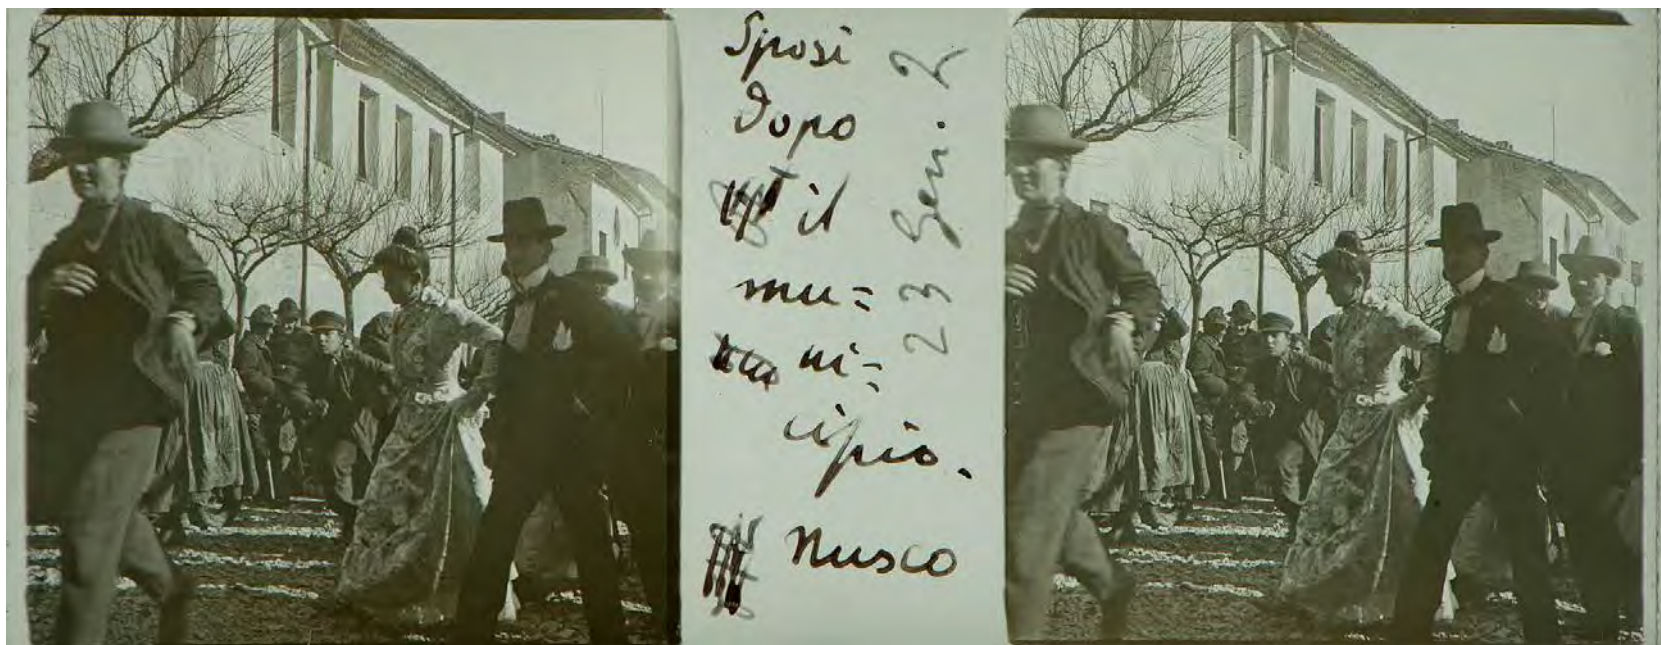 Sposi
Dopo
il
mu=
ni=
cipio.
Nusco
23 Gen. 2